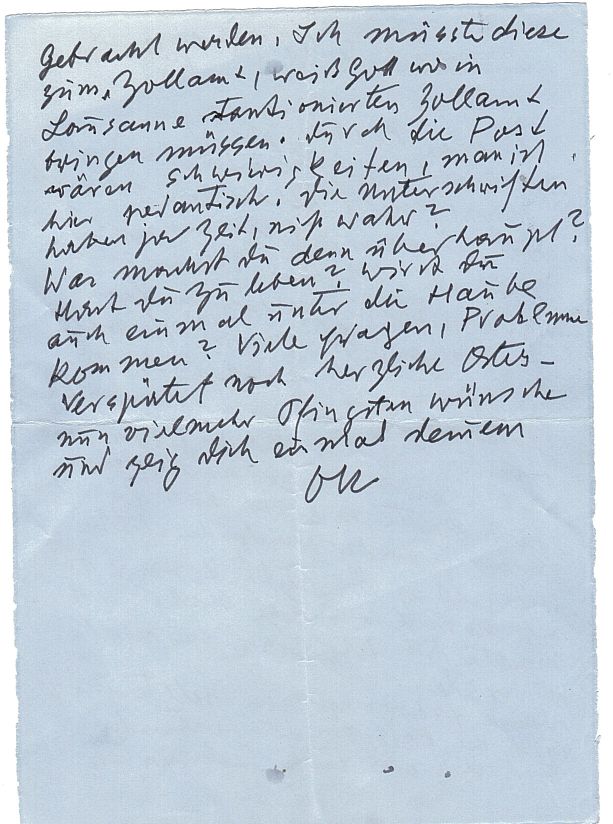 gebracht werden, Ich müsste diese
zum Zollamt, weiß Gott wo in
Lousanne stantionierten Zollamt
bringen müssen. Durch die Post
wären Schwierigkeiten, man ist
hier pedantisch. Die Unterschriften
haben ja Zeit, nicht wahr?
Was machst du denn überhaupt?
Hast du zu leben? wirst du
auch einmal unter die Haube
kommen? Viele Fragen, Probleme
Verspätet noch herzliche Oster-
nun vielmehr Pfingsten wünsche
und zeig dich einmal deinem
OK